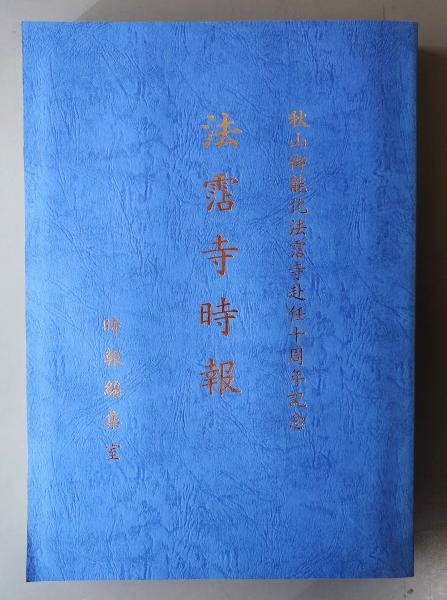 秋山御能化法霑寺赴任十周年記念
法霑寺時報
時報編集室